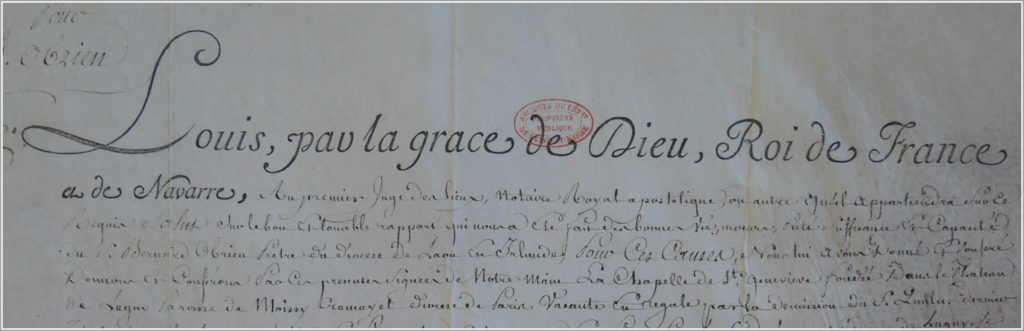 Pour
Obrien
Louis, par la grace de Dieu, Roi de France
et de Navarre, Au premier Juge des lieux, Notaire Royal apostolique, ou autre qu'il appartiendra sur ce
Requis Salut Sur le bon et louable rapport qui nous a été fait des bonnes vie, moeurs, Suffisance et Capacité
du S. Bernard Obrien Prêtre du diocese de en Irlande, Pour Ces Causes, Nous lui avons donné et Conferé
Donnons et Conferons par Ces presentes signées de Notre Main La Chapelle de Ste. Genevieve fondée Dans le Chateau
de Lugny Paroisse de Moissy Cramayel diocese de Paris Vacante En Regale par la demission du S. dernier
ARCHIVES DU DEPT.
PROPRIÉTÉ
PUBLIQUE
DE MARNE